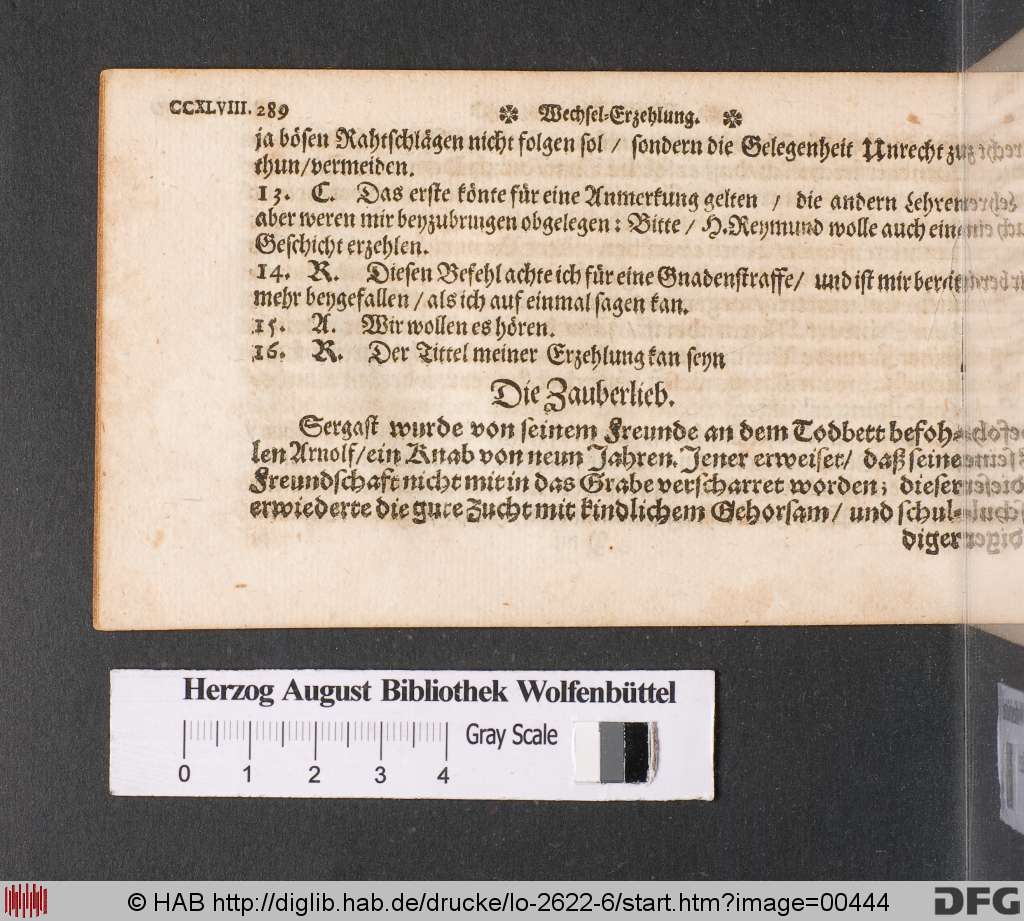 CCXLVIII. 289 ❉ Wechsel-Erzehlung. ❉
ja bösen Rahtschlägen nicht folgen sol / sondern die Gelegenheit Unrecht zu
thun/vermeiden.
13. C. Das erste könte für eine Anmerkung gelten / die andern Lehren
aber weren mir beyzubringen obgelegen: Bitte / H. Reymund wolle auch ein
Geschicht erzehlen.
14. R. Diesen Befehl achte ich für eine Gnadenstraffe/ und ist mir bereit
mehr beygefallen / als ich auf einmal sagen kan.
15. A. Wir wollen es hören.
16. R. Der Tittel meiner Erzehlung kan seyn
Die Zauberlieb.
Sergast wurde von seinem Freunde an dem Todbett befoh-
len Arnolf/ein Knab von neun Jahren. Jener erweiset/ daß seine
Freundschaft nicht mit in das Grabe verscharret worden; dieser
erwiederte die gute Zucht mit kindlichem Gehorsam/ und schul-
diger
Herzog August Bibliothek Wolfenbüttel
Gray Scale
0 1 2 3 4
© HAB http://diglib.hab.de/drucke/lo-2622-6/start.htm?image=00444
DFG